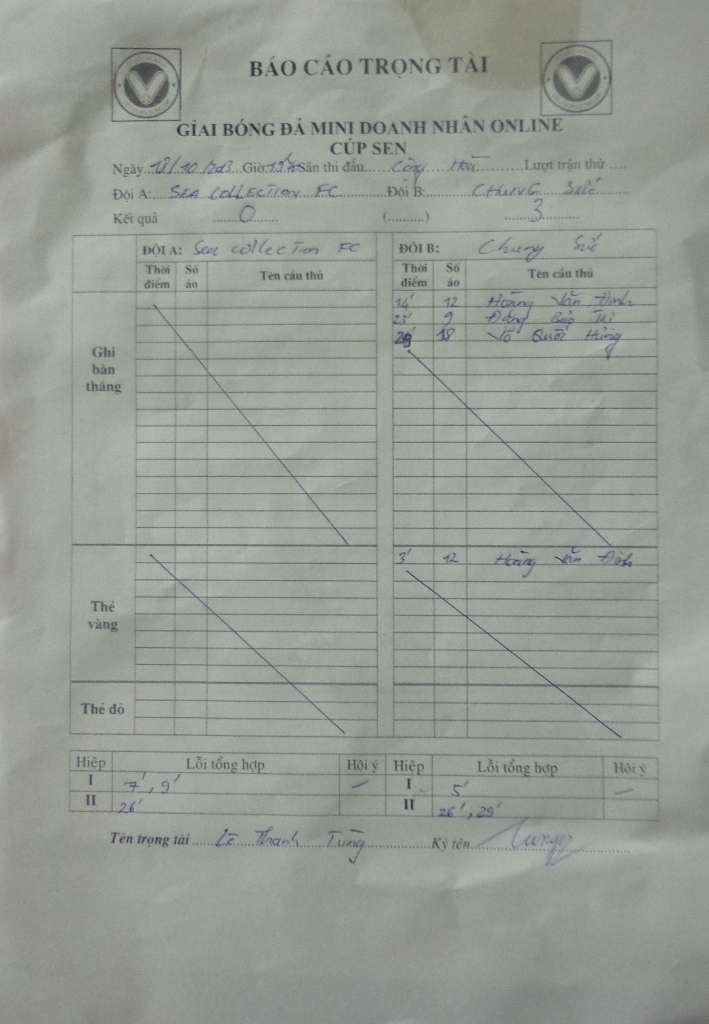 BÁO CÁO TRỌNG TÀI
GIẢI BÓNG ĐÁ MINI DOANH NHÂN ONLINE
CÚP SEN
Ngày 18/10/2013 Giờ Sân thi đấu Cộng Hòa Lượt trận thứ
Đội A: SEA COLLECTION FC Đội B: CHUNG SỨC
Kết quả 0 (..........) 3
ĐỘI A: Sea collection FC ĐỘI B: Chung Sức
Thời điểm Số áo Tên cầu thủ Thời điểm Số áo Tên cầu thủ
Ghi bàn thắng
14' 12 Hoàng Văn Định
23' 9 Đặng Bảo Trị
18 Võ Quốc Hùng
Thẻ vàng
3' 12 Hoàng Văn Định
Thẻ đỏ
Hiệp Lỗi tổng hợp Hội ý Hiệp Lỗi tổng hợp Hội ý
I 7', 9' – I 5' –
II 26' II 26', 29'
Tên trọng tài Lê Thanh Tùng Ký tên